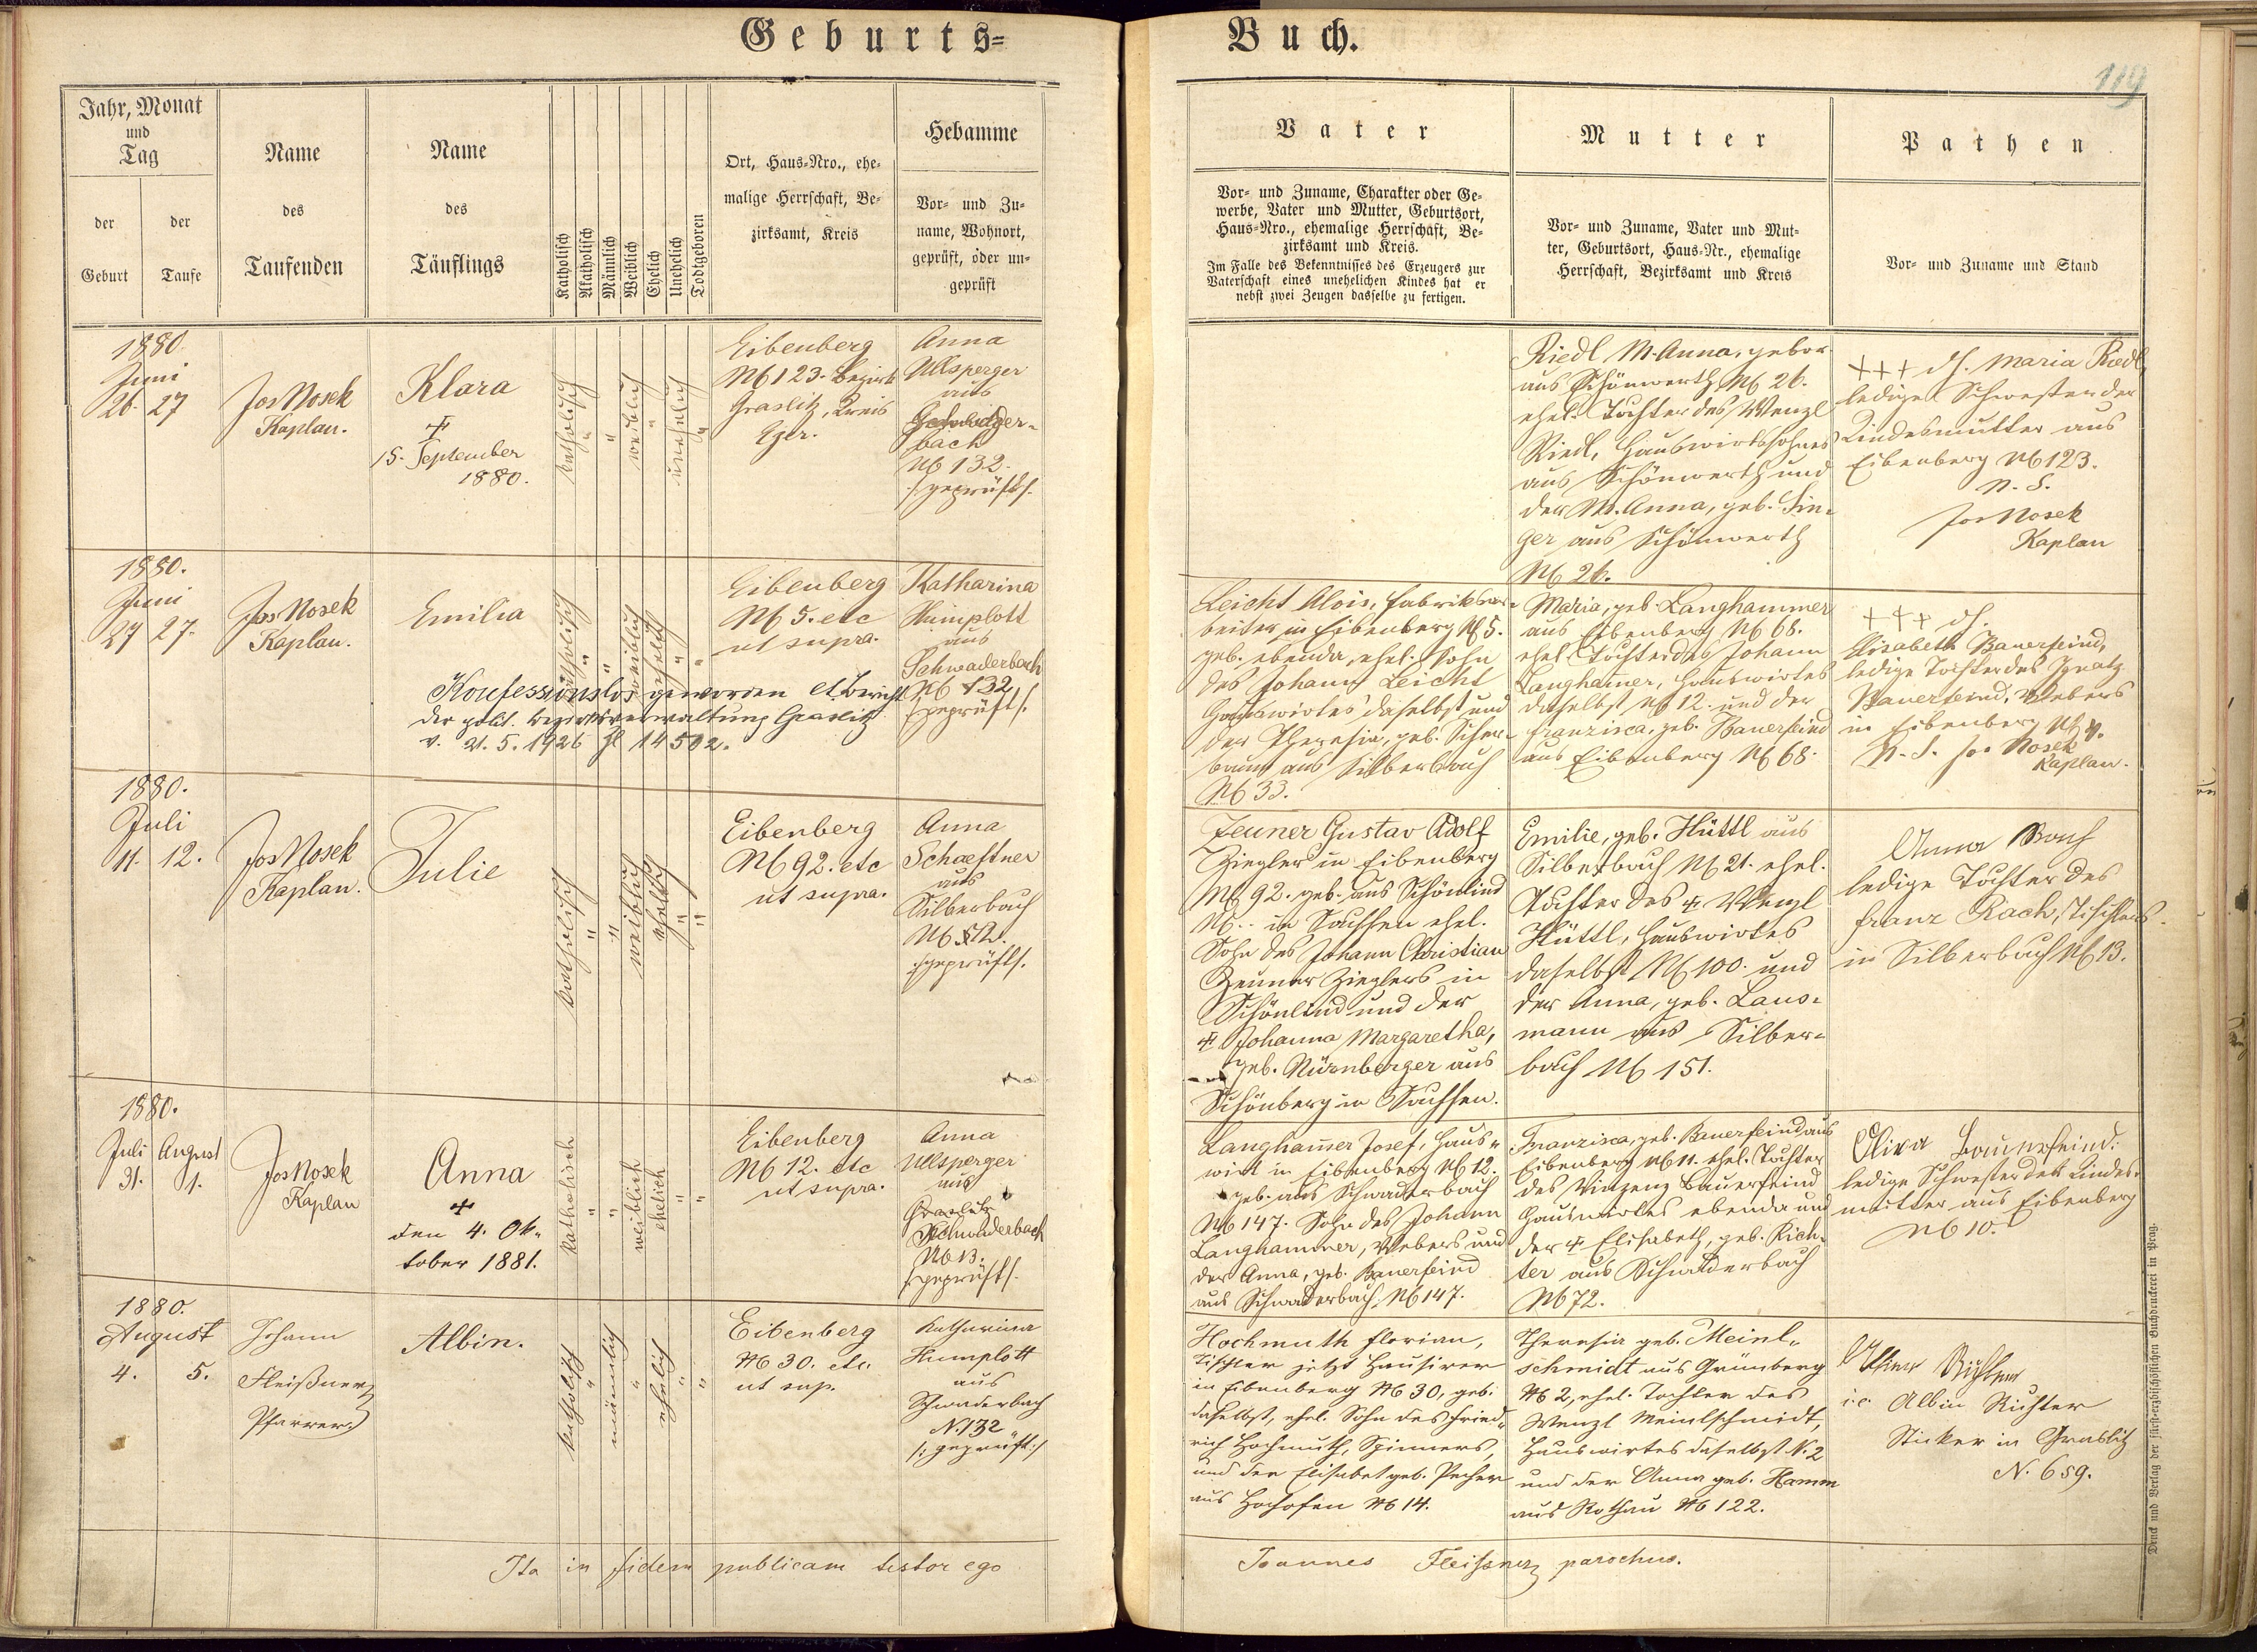 Geburts=
Buch.
119
Jahr, Monat
und
Tag
der
Geburt
der
Taufe
Name
des
Taufenden
Name
des
Täuflings
Katholisch
Akatholisch
Männlich
Weiblich
Ehelich
Unehelich
Todtgeboren
Ort, Haus-Nro., ehe-
malige Herrschaft, Be-
zirksamt, Kreis
Hebamme
Vor- und Zu-
name, Wohnort,
geprüft, oder un-
geprüft
Vater
Vor- und Zuname, Charakter oder Ge-
werbe, Vater und Mutter, Geburtsort,
Haus-Nro., ehemalige Herrschaft, Be-
zirksamt und Kreis.
Im Falle des Bekenntnisses des Erzeugers zur
Vaterschaft eines unehelichen Kindes hat er
nebst zwei Zeugen dasselbe zu fertigen.
Mutter
Vor- und Zuname, Vater und Mut-
ter, Geburtsort, Haus-Nr., ehemalige
Herrschaft, Bezirksamt und Kreis
Pathen
Vor- und Zuname und Stand
1880
Juni
26. 27
Jos Nosek
Kaplan.
Klara
+
15. September
1880.
katholisch
"
"
weiblich
"
unehelich
"
Eibenberg
N 123. Bezirk
Graslitz, Kreis
Eger.
Anna
Ullsperger
aus
bach
N 132.
/geprüft/.
Riedl M. Anna, gebor.
aus Schönwerth N 26.
ehel. Tochter des Wenzl
Riedl, Hauswirthssohnes
aus Schönwerth und
der M. Anna, geb. Sin-
ger aus Schönwerth
N 26.
+++ d. Maria Riedl,
ledige Schwester der
Kindesmutter aus
Eibenberg N 123.
N. S.
Jos Nosek
Kaplan
1880.
Juni
27 27.
Jos Nosek
Kaplan.
Emilia
katholisch
"
"
weiblich
ehelich
"
"
Eibenberg
N 5. etc
ut supra.
Katharina
Humplott
aus
Schwaderbach
N 132
/geprüft/.
Konfessionslos geworden lt. Bericht
der polit. Bezirksverwaltung Graslitz
v. 21. 5. 1926 Zl 14502.
Leicht Alois, Fabriksar-
beiter in Eibenberg N 5.
geb. ebenda, ehel. Sohn
des Johann Leicht
Hauswirtes daselbst und
der Theresia, geb.
baum aus Silberbach
N 33.
Maria, geb. Langhammer
aus Eibenberg N 68.
ehel. Tochter des Johann
Langham̅er, Hauswirtes
daselbst N 12. und der
Franzisca, geb. Bauerfeind
aus Eibenberg N 68.
+++ d.
Elisabeth Bauerfeind,
ledige Tochter des Ignatz
Bauerfeind, Webers
in Eibenberg N
N. S. Jos Nosek
Kaplan.
1880.
Juli
11. 12.
Jos Nosek
Kaplan.
Julie
katholisch
"
"
weiblich
ehelich
"
"
Eibenberg
N 92. etc
ut supra.
Anna
Schaeftner
aus
Silberbach
N
/geprüft/.
Zeuner Gustav Adolf
Ziegler in Eibenberg
N 92. geb. aus Schönlind
N .. in Sachsen ehel.
Sohn des Johann Christian
Zeuner Zieglers in
Schönlind und der
+ Johanna Margaretha,
geb. Nürnberger aus
Schönberg in Sachsen.
Emilie, geb. Hüttl aus
Silberbach N 21. ehel.
Tochter des + Wenzl
Hüttl, Hauswirtes
daselbst N 100. und
der Anna, geb. Laus-
mann aus Silber-
bach N 151.
Anna
ledige Tochter des
Franz Rach, Tischlers
in Silberbach N 13.
1880.
Juli August
31. 1.
Jos Nosek
Kaplan
Anna
+
den 4. Ok-
tober 1881.
katholisch
"
"
weiblich
ehelich
"
"
Eibenberg
N 12. etc
ut supra.
Anna
Ullsperger
aus
Graslitz
Schwaderbach
N 13.
/geprüft/.
Langham̅er Josef, Haus-
wirt in Eibenberg N 12.
geb. aus Schwaderbach
N 147. Sohn des Johann
Langhammer, Webers und
der Anna, geb. Bauerfeind
aus Schwaderbach N 147.
Franzisca, geb. Bauerfeind aus
Eibenberg N 11. ehel. Tochter
des Vinzenz Bauerfeind
Hauswirtes ebenda und
der + Elisabeth, geb. Rich-
ter aus Schwaderbach
N 72.
Oliva Bauerfeind.
ledige Schwester der Kindes-
mutter aus Eibenberg
N 10.
1880.
August
4. 5.
Johann
Fleißner
Pfarrer
Albin.
katholisch
"
männlich
"
ehelich
"
"
Eibenberg
N 30. etc.
ut sup.
Katharina
Humplott
aus
Schwaderbach
N. 132
/: geprüft :/
Hochmuth Florian,
Tischler jetzt Hausirer
in Eibenberg N 30, geb.
daselbst, ehel. Sohn des Fried-
rich Hochmuth, Spinners,
und der Elisabet geb. Pecher
aus Hochofen N 14.
Theresia geb. Meinl-
schmidt aus Grünberg
N 2, ehel. Tochter des
Wenzl Meinlschmidt,
Hauswirtes daselbst N. 2
und der Anna geb. Hamm
aus Rothau N 122.
i.e. Albin Richter
Sticker in Graslitz
N. 659.
Ita in fidem publicam testor ego
Joannes Fleissner parochus.
Druck und Verlag der fürst-erzbischöflichen Buchdruckerei in Prag.